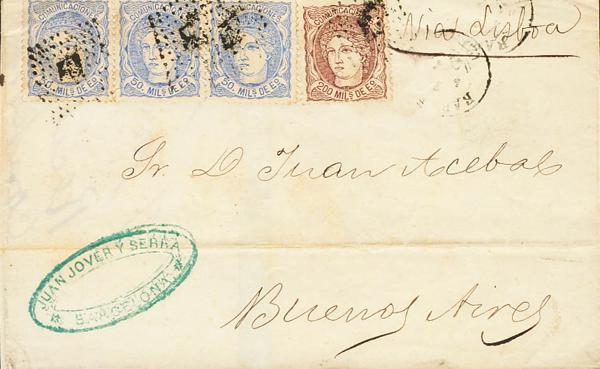 COMUNICACIONES COMUNICACIONES COMUNICACIONES COMUNICACIONES
50 MILS DE Eº 50 MILS DE Eº 50 MILS DE Eº 200 MILS DE Eº
Via Lisboa
Sr. D. Juan Acebal
JUAN JOVER Y SERRA
BARCELONA
Buenos Aires